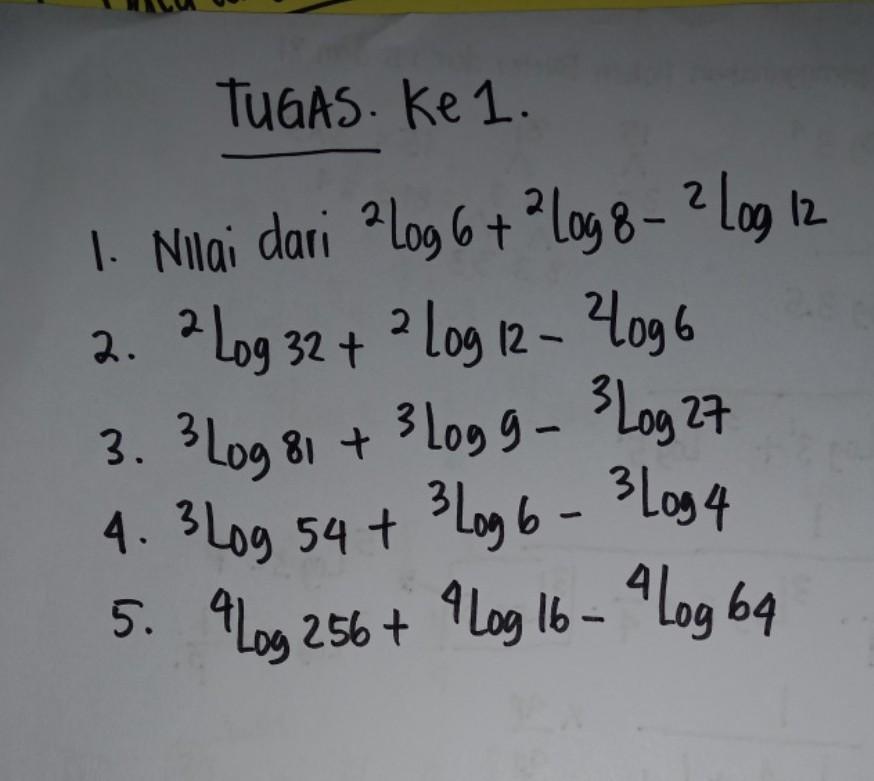 TUGAS. Ke 1.
1. Nilai dari ²Log 6 + ²Log 8 - ²Log 12
2. ²Log 32 + ²Log 12 - ²log 6
3. ³Log 81 + ³Log 9 - ³Log 27
4. ³Log 54 + ³Log 6 - ³Log 4
5. ⁴Log 256 + ⁴Log 16 - ⁴Log 64